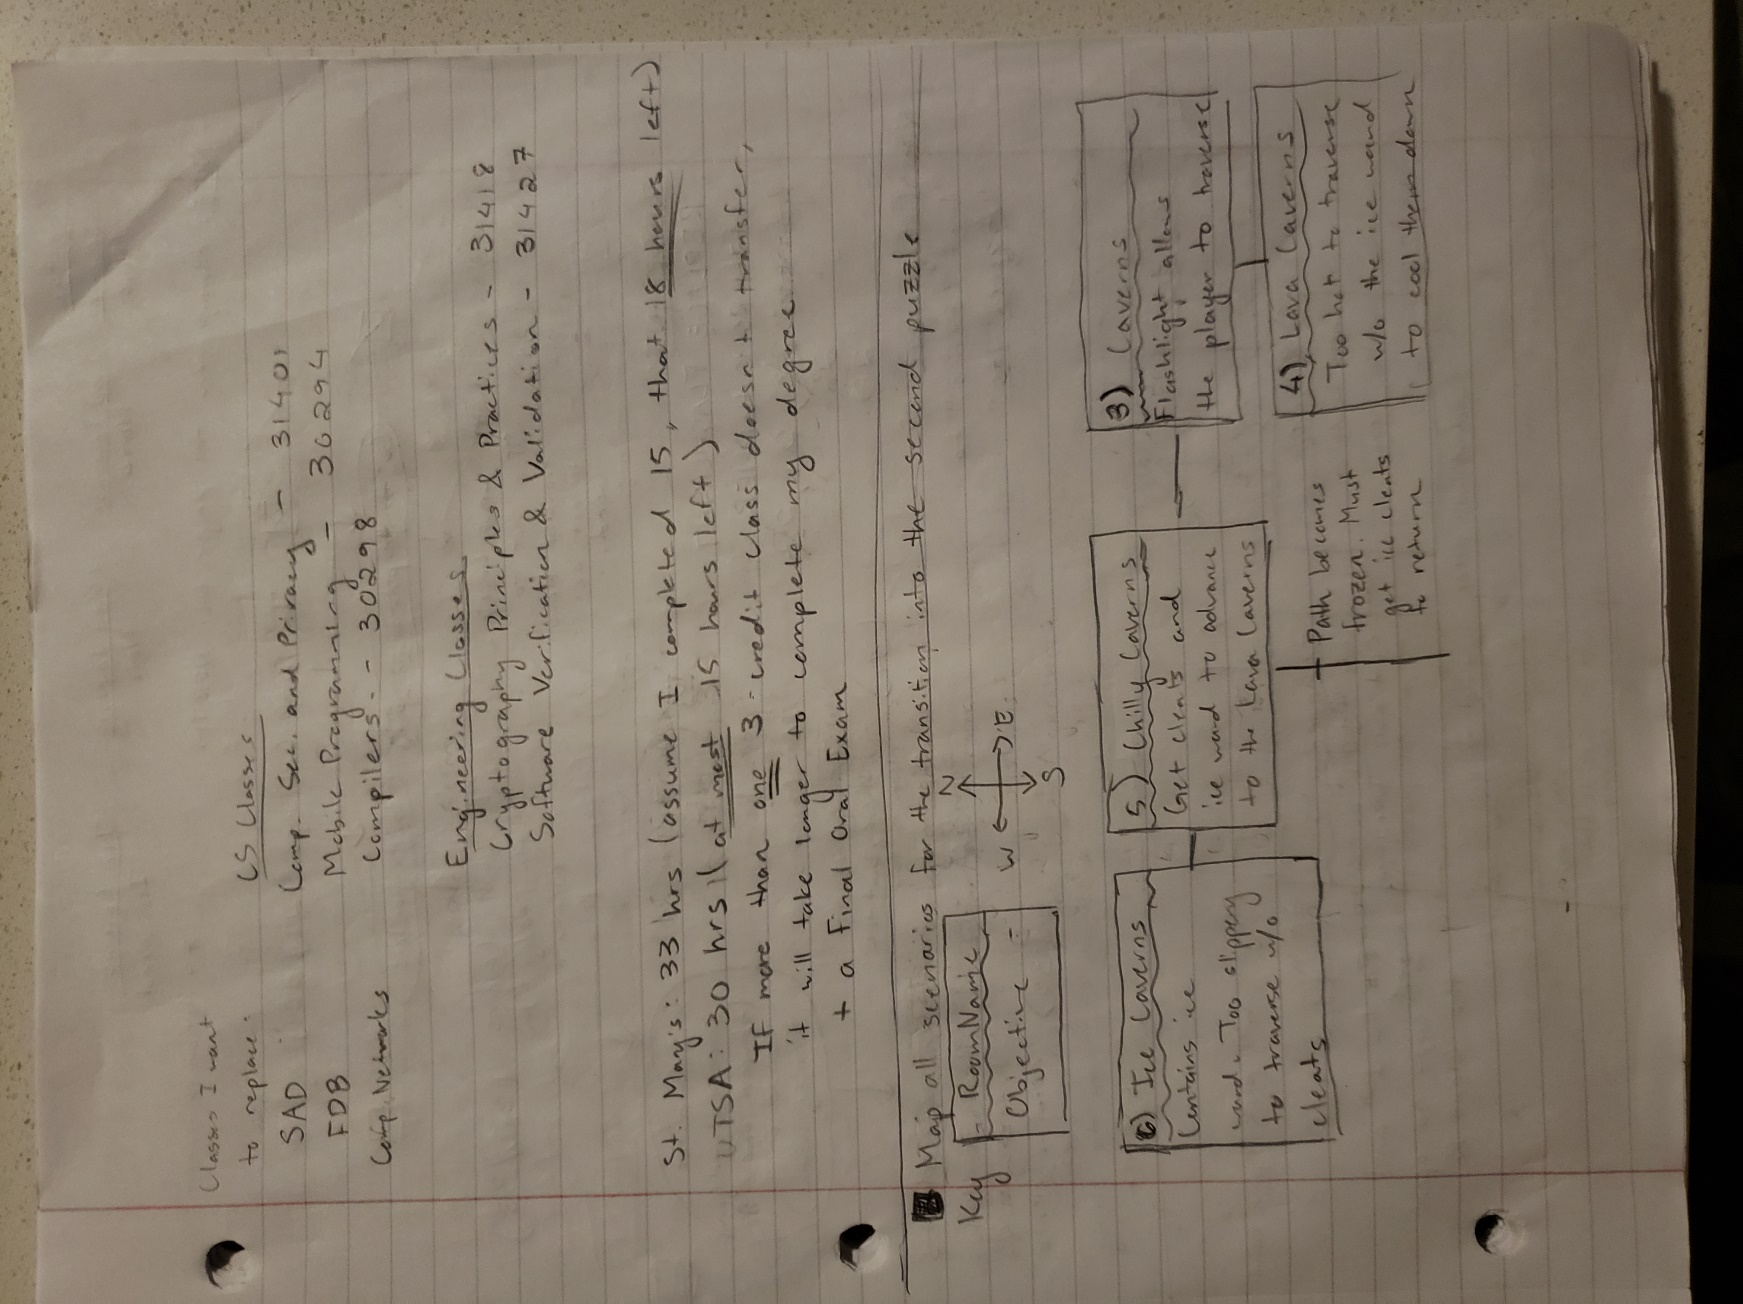 Classes I want
to replace:
SAD
FDB
Comp. Networks
CS Classes
Comp. Sec. and Privacy - 31401
Mobile Programming - 30294
Compilers - 30298
Engineering Classes
Cryptography Principles & Practices - 31418
Software Verification & Validation - 31427
St. Mary's: 33 hrs (assume I completed 15, that 18 hours left)
UTSA: 30 hrs (at most 15 hours left)
If more than one 3-credit class doesn't transfer,
it will take longer to complete my degree
+ a Final Oral Exam
Map all scenarios for the transition into the second puzzle
Key
Room Name
Objective
N
W
E
S
6) Ice Caverns
Contains ice
wand. Too slippery
to traverse w/o
cleats
5) Chilly Caverns
Get cleats and
ice wand to advance
to the Lava Caverns
3) Caverns
Flashlight allows
the player to traverse
4) Lava Caverns
Too hot to traverse
w/o the ice wand
to cool them down
Path becomes
frozen. Must
get ice cleats
to return